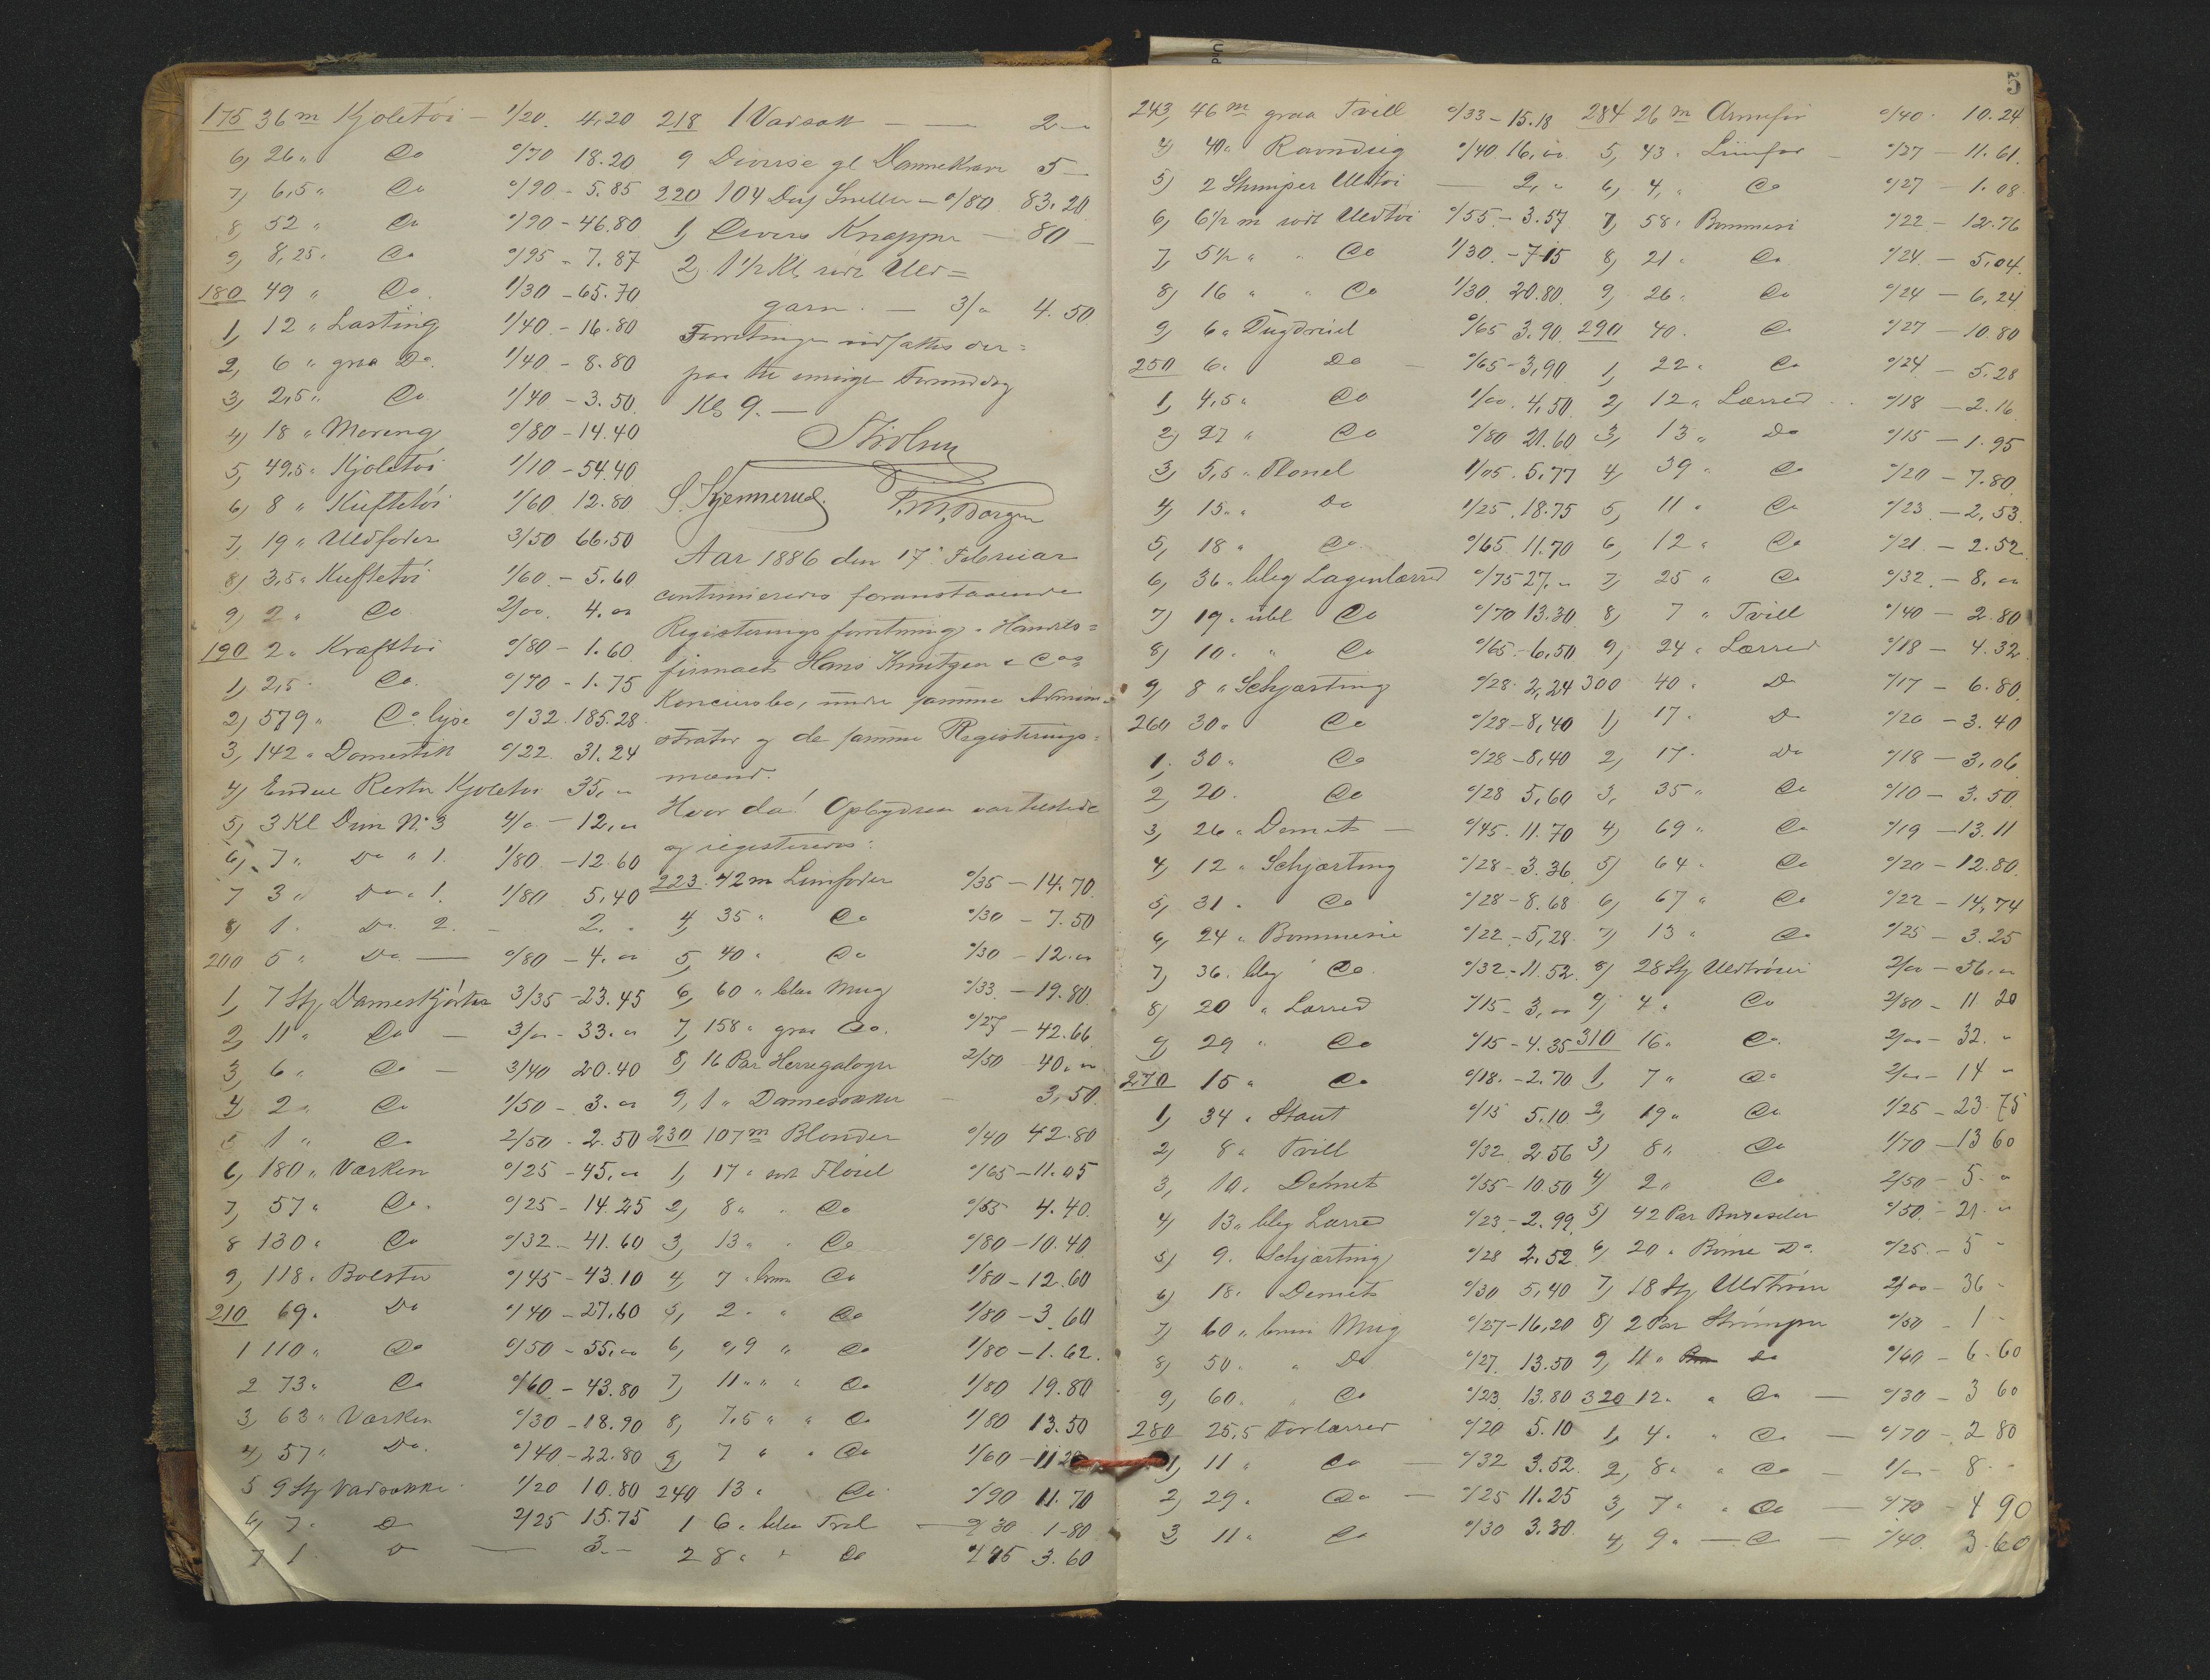 175 36 m Kjoletöi - 1/20. 4,20
6, 26 „ Do 0/70 18.20
7, 6,5 „ Do 0/90 - 5.85
8, 52 „ Do 0/90 - 46.80
9, 8,25 „ Do 0/95 - 7.87
180 49 „ Do. 1/30 - 65.70
1, 12 „ Lasting 1/40 - 16.80
2, 6 „ graa Do. 1/40 - 8.80
3, 2,5 „ Do 1/40 - 3.50
4, 18 „ Moreng 0/80 - 14.40
5, 49,5 „ Kjoletöi 1/10 - 54.40
6, 8 „ Kuftetöi 1/60 12.80
7, 19 „ Uldfoder 3/50 66.50
8, 3,5 „ Kuftetöi 1/60 - 5.60
9, 2 „ Do 2/00. 4.00
190 2 „ Kraftöi 0/80 - 1.60
1, 2,5 Do. 0/70 - 1.75
2, 579 „ Do. lyse 0/32. 185.28
3, 142 „ Domestik 0/22. 31.24
4, Endel Rester Kjoletöi 35,00
5, 3 Kl Dun No. 3 4/0 - 12,00
6, 7 „ Do „ 1. 1/80 - 12.60
7 3 „ Do „ 1. 1/80 5,40
8, 1. Do. 2. - 2. „
200 5 „ Do - 0/80 - 4.00
1, 7 Stk Dameskjörter 3/35 - 23.45
2, 11 „ Do - 3/00 - 33.00
3, 6 „ Do - 3/40 20.40
4, 2 „ Do 1/50 - 3.00
5 1 „ Do 2/50 - 2.50
6, 180 „ Værken 0/25 - 45,00
7, 57 „ Do. 0/25 - 14.25
8 130 „ Do 0/32 - 41.60
9, 118 „ Bolster 0/45 - 43.10
210 69 „ Do 0/40 - 27,60
1 110 „ Do 0/50 - 55,00
2 73 „ Do 0/60 - 43.80
3, 63 „ Værken 0/30 - 18.90
4, 57 „ Do. 0/40 - 22.80
5 9 Stk Vadsække 1/20 10.80
6, 7 „ D 2/25 15.75
7 1 D - 3.-
218 1 Vadsæk - - 2-
9 Diverse gl Dannekraver 5-
220 104 Dus Sneller - 0/80 83.20
1, Divers Knapper - 80-
2, 1 1/2 Kl. rödt Uld=
garn. - 3/0 4.50
Forretningen udsattes der=
paa til imorgen Formiddag
Kl 9. -
S. Kjennerud. P. M. Borgen
Aar 1886 den 17. Februar
continueredes foranstaaende
Registerings forretning i Handels=
firmaet Hans Knutzen & Co.s
Koncursbo, under samme Admini=
strator og de samme Registerings=
mænd.
Hvor da! Opbydren var tilstede
og registeredes:
223. 42 m Limfoder 0/35 - 14.70.
4, 35 „ Do 0/30 - 7.50
5, 40 „ Do 0/30 - 12.00
6, 60 „ blaa Mug 0/33. - 19.80
7, 158 „ graa Do. 0/27 - 42.66
8, 16 Par Herregaloger 2/50 40,00
9, 1 „ Damesokker - 3,50.
230 107 m Blonder 0/40 42.80
1, 17 „ sort Flöiel 0/65 - 11.05
2, 8 „ „ Do 0/55 4.40.
3, 13 „ „ Do 0/80 - 10.40
4, 7 „ brun Do 1/80 - 12.60
5, 2 „ „ Do 1/80 - 3.60
6, 0,9 „ Do 1/80 - 1.62.
7, 11 „ „ Do 1/80 19.80
8, 7,5 „ „ Do 1/80 13.50
9, 7 „ „ Do 1/60 - 11.20
240 13 „ Do 0/90 11.70
1 6 „ blaa Tvil - 0/30 1-80
2 8 „ „ Do 0/45 3.60
5
243, 46 m graa Tvill 0/33 - 15.18
4, 40 „ Ravndug 0/40. 16,00
5, 2 Stumper Uldtöi - 2, „
6, 6 1/2 m rödt Uldtöi 0/55 - 3.57
7, 5 1/2 „ „ Do 1/30. - 7.15
8, 16 „ „ Do 1/30. 20.80.
9, 6 „ Dugdreiel 0/65 3.90.
250 6 „ Do - 0/65 - 3,90
1, 4,5 „ Do 1/00. 4,50.
2, 27 „ Do 0/80 21.60
3, 5,5 „ Flonel 1/05. 5.77
4, 15 „ Do 1/25. 18.75
5, 18 „ Do 0/65. 11.70
6, 36 „ bleg Lagenlærred 0/75 27. „
7, 19 „ ubl Do 0/70 13.30
8, 10 „ „ Do 0/65. - 6,50
9, 8 „ Schjærting 0/28. 2,24
260 30 „ Do 0/28 - 8,40
1, 30 „ Do 0/28 - 8,40
2, 20 „ Do 0/28 5,60
3, 26 „ Demets - 0/45. 11.70
4, 12 „ Schjærting 0/28 - 3.36
5, 31 „ Do 0/28 - 8.68
6, 24 „ Bommesie 0/22 - 5,28
7, 36 „ bleg Do. 0/32 - 11.52.
8, 20 „ Lærred 0/15 - 3,00
9, 29 „ Do 0/15 - 4.35
270 15 „ Do 0/18. - 2.70
1, 34 „ Staut 0/15 5.10
2, 8 „ Tvill 0/32. 2.56
3, 10 „ Demets 0/55 - 10.50
4, 13 „ bleg Lærred 0/23 - 2.99.
5, 9 „ Schjærting 0/28 2,52
6, 18 „ Demets 0/30 5,40
7, 60 „ brun Mug 0/27 - 16,20
8, 50 „ „ Do 0/27. 13.50
9, 60 „ „ Do 0/23 13.80
280 25,5 Forlærred 0/20 5.10
1, 11 „ Do - 0/32 3.52.
2, 29 „ Do - 0/25 11.25
3 11 „ Do 0/30 3.30.
284 26 m Armfór 0/40. 10.24
5, 43 „ Limfor - 0/27 - 11.61.
6, 4, „ Do 0/27 - 1.08.
7, 58 „ Bommesi 0/22 - 12.76
8, 21 „ Do 0/24. - 5,04.
9, 26 „ Do 0/24 - 6,24
290 40 „ Do 0/27 - 10.80
1, 22 „ Do 0/24 - 5.28
2, 12 „ Lærred 0/18 - 2.16.
3, 13 „ Do 0/15 - 1.95
4, 39 „ Do 0/20 - 7.80.
5, 11 „ Do 0/23 - 2,53.
6, 12 „ Do 0/21. - 2.52
7, 25 „ Do 0/32. - 8,00
8, 7 „ Tvill 0/40 - 2.80
9, 24 „ Lærred 0/18 - 4.32
300 40 „ D 0/17 - 6.80.
1, 17 „ D 0/20 - 3.40
2, 17 „ Do 0/18 - 3,06
3, 35 „ Do 0/10 - 3.50
4, 69 „ Do 0/19 - 13.11
5, 64 „ Do 0/20 - 12.80.
6, 67 „ Do 0/22 - 14,74
7, 13 „ Do 0/25 - 3.25
8, 28 Stk Uldtröier 2/00 - 56,00
9, 4 „ Do 2/80 - 11 20
310 16 „ Do. 2/00 - 32. „
1, 7 „ Do 2/00 - 14 „
2, 19 „ Do 1/25 - 23.75
3, 8 „ Do 1/70 - 13 60
4, 2 „ Do 2/50 - 5. „
5, 42 Par Buxeseler 0/50. - 21. „
6, 20 „ Börne Do. 0/25. - 5 -
7, 18 Stk Uldtröier 2/00 - 36 -
8, 2 Par Strömper 0/50 - 1 -
9, 11 „ Do 0/60 - 6.60
320 12 „ „ Do - 0/30 - 3 60
1, 4 „ „ Do - 0/70 - 2 80
2, 8 „ „ Do - 1/00 - 8 -
3, 7 „ „ Do - 0/70 - 4 90
4, 9 „ - D - 0/40. 3.60